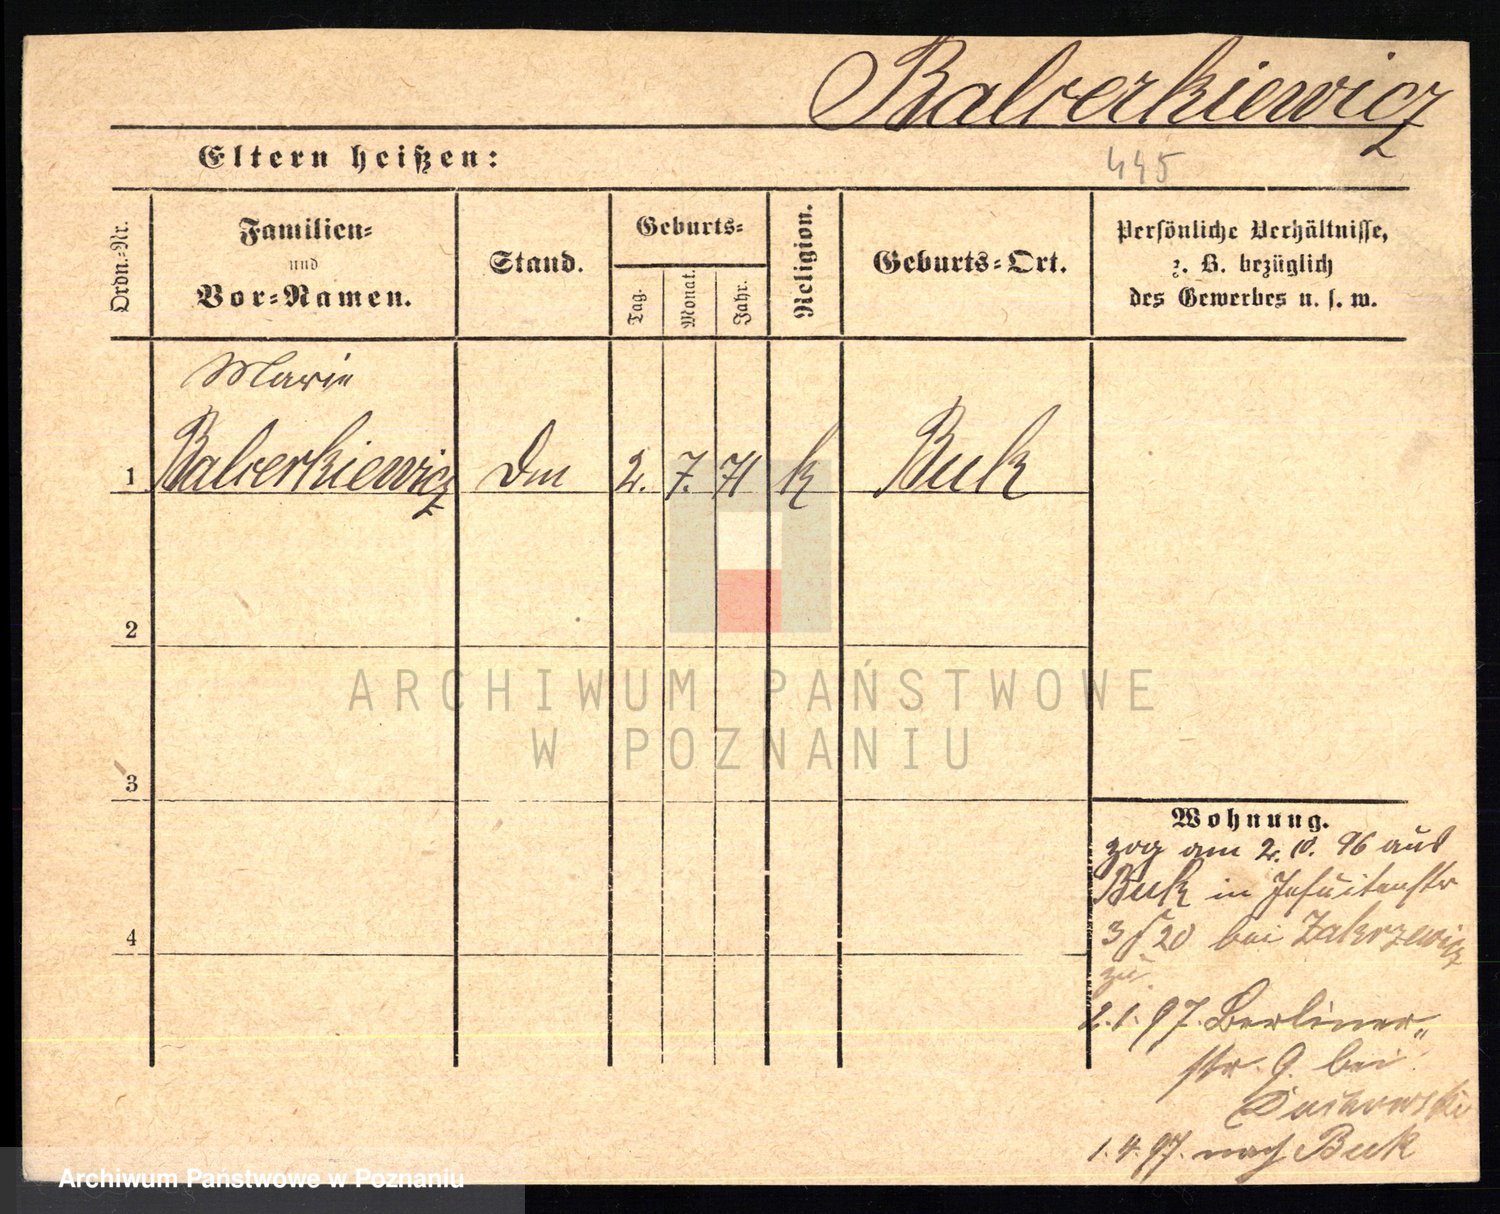 Balcerkiewicz
Eltern heißen:
445
Ordn.-Nr.
Familien-
und
Vor-Namen.
Stand.
Geburts-
Tag.
Monat.
Jahr.
Religion.
Geburts-Ort.
Persönliche Verhältnisse,
z. B. bezüglich
des Gewerbes u. s. w.
Marie
1 Balcerkiewicz Dm 2. 7. 71 k Buk
2
3
4
ARCHIWUM PAŃSTWOWE
W POZNANIU
Wohnung.
zog am 2. 10. 96 aus
Buk in Jesuitenstr
3 / 20 bei Zakrzewicz
zu
2. 1. 97. Berliner-
str. 9. bei
1. 4. 97. nach Buk
Archiwum Państwowe w Poznaniu